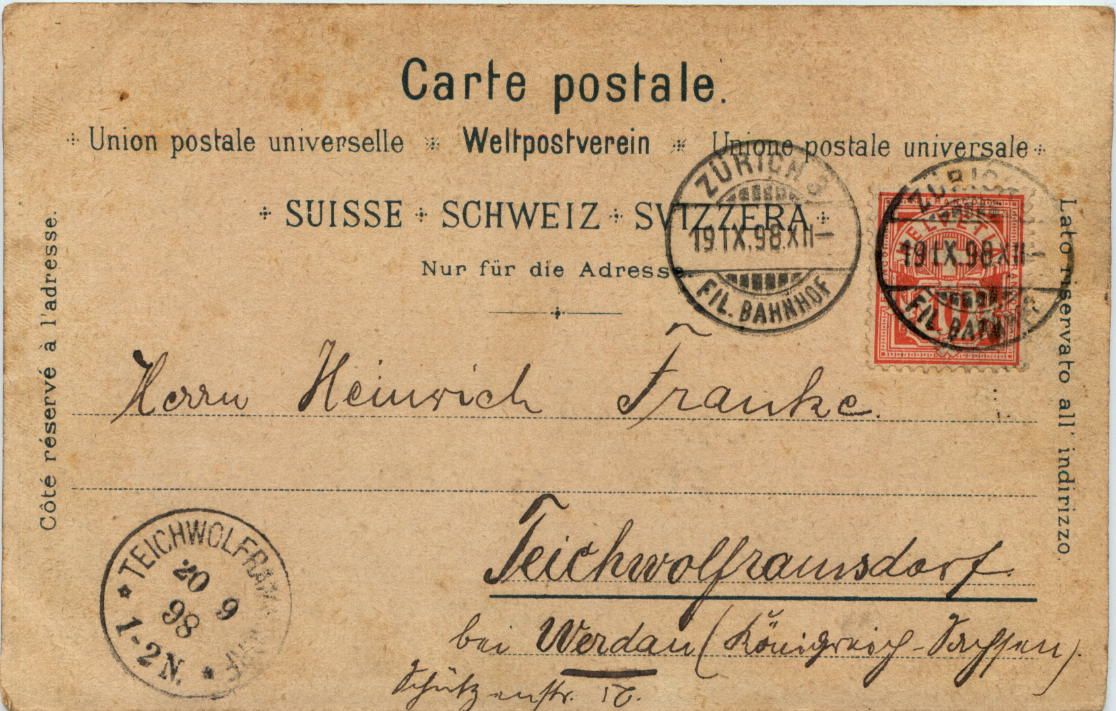 Carte postale.
Union postale universelle * Weltpostverein * Unione postale universale
SUISSE + SCHWEIZ + SVIZZERA
Nur für die Adresse.
Côté réservé à l'adresse.
Lato riservato all' indirizzo.
ZÜRICH 3
19.IX.98.XII-
FIL. BAHNHOF
ZÜRICH
19.IX.98.XII-
FIL. BAHNHOF
HELVETIA
10
Herrn Heinrich Franke.
Teichwolframsdorf.
bei Werdau (Königreich-Sachsen).
Schützenstr.
TEICHWOLFRAMSDORF
20 9
98
1-2N.